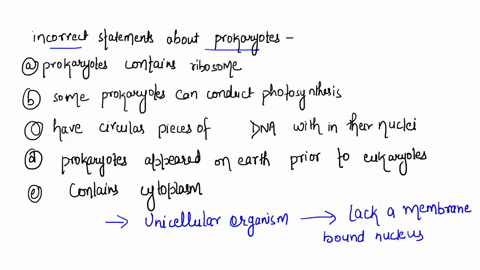 incorrect statements about prokaryotes -
(a) prokaryotes contains ribosome
(b) some prokaryotes can conduct photosynthesis
(c) have circular pieces of DNA with in their nuclei
(d) prokaryotes appeared on earth prior to eukaryotes
(e) Contains cytoplasm
→ Unicellular organism → Lack a membrane
bound nucleus